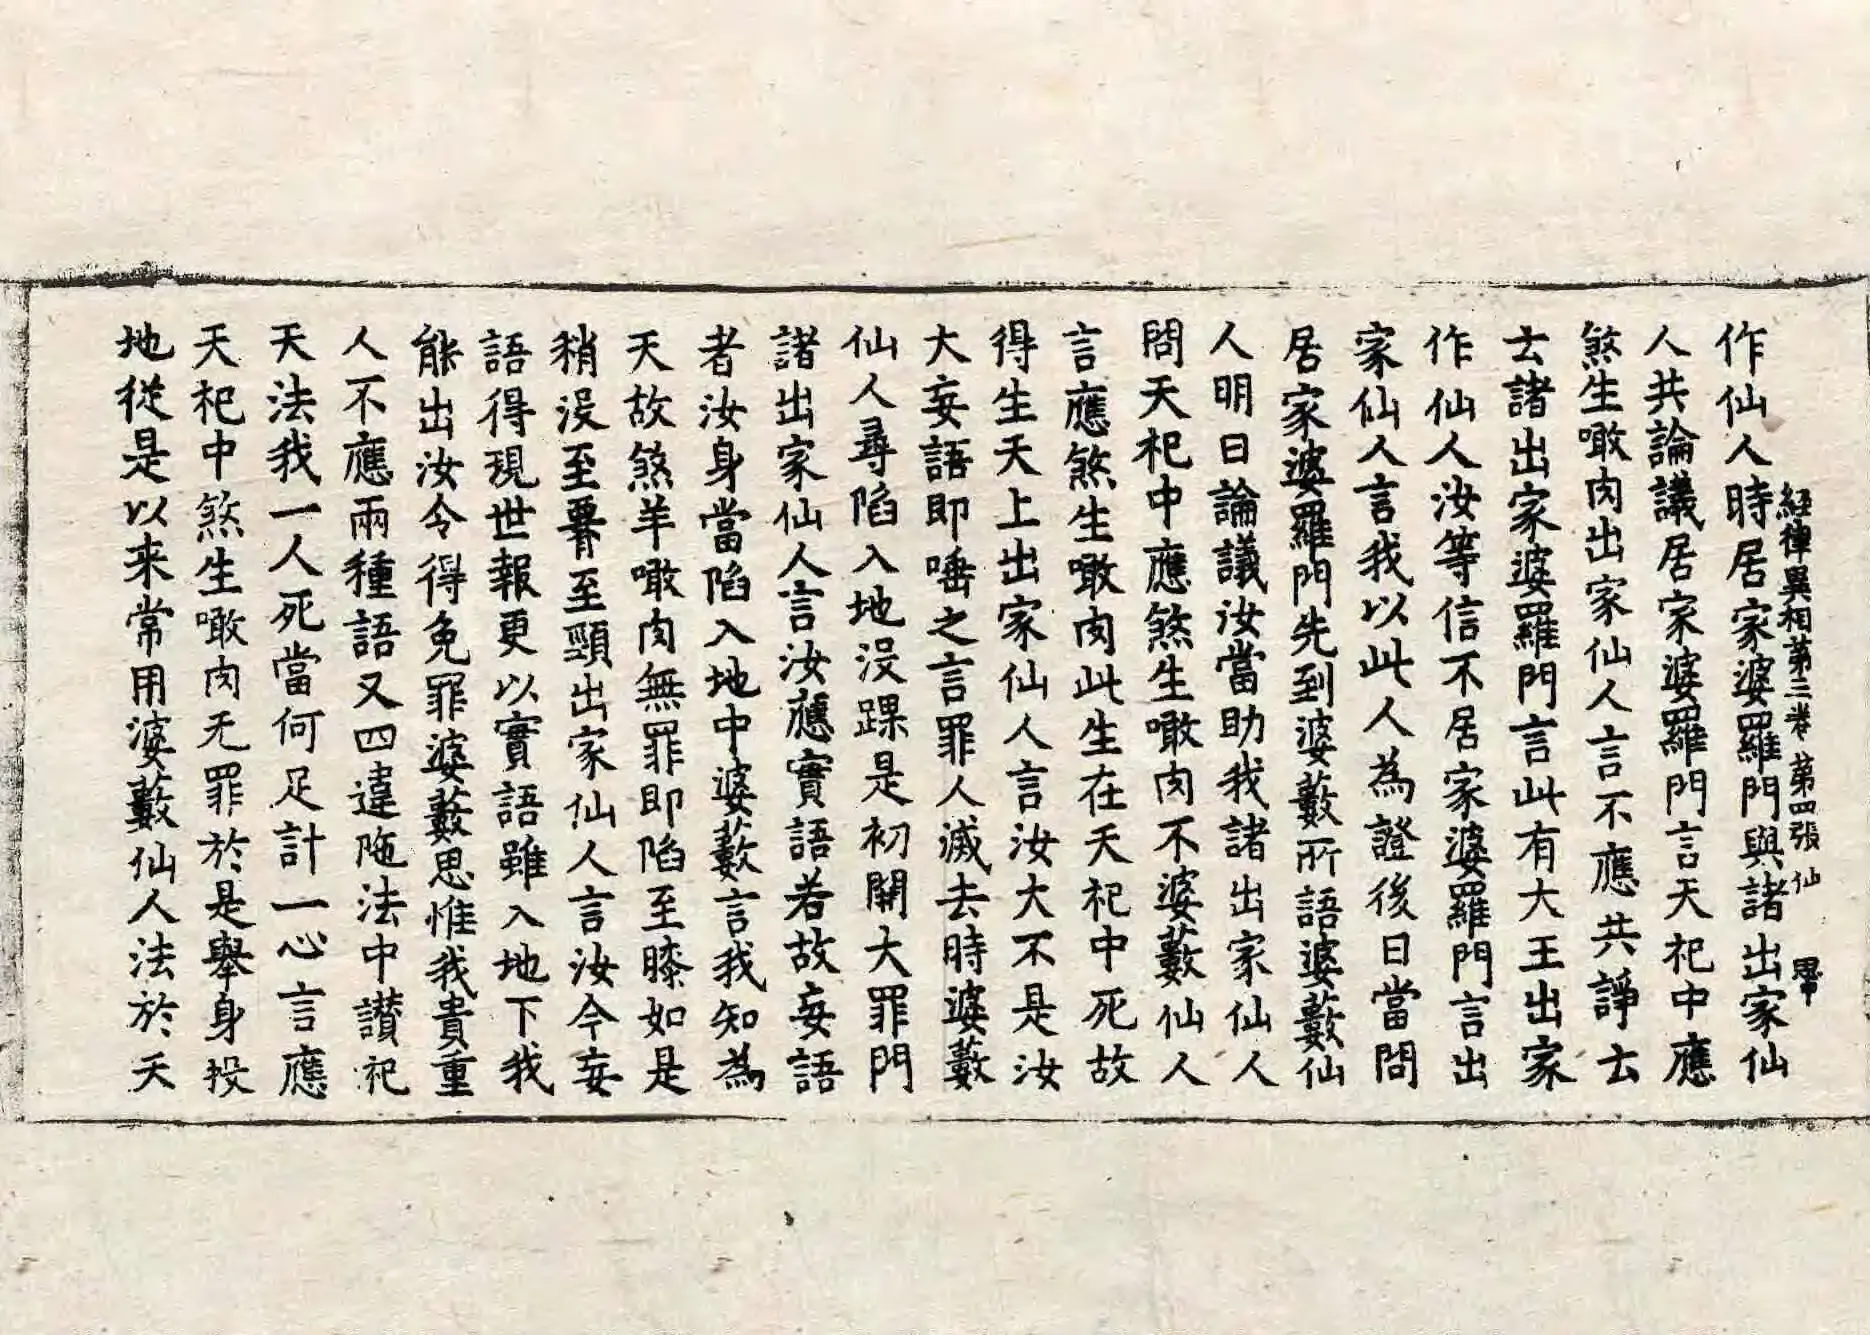 作仙人時居家婆羅門與諸出家仙
經律異相第三卷 第四張 仙
人共論議居家婆羅門言天祀中應
煞生噉肉出家仙人言不應共諍去
去諸出家婆羅門言此有大王出家
作仙人汝等信不居家婆羅門言出
家仙人言我以此人為證後日當問
居家婆羅門先到婆藪所語婆藪仙
人明日論議汝當助我諸出家仙人
問天祀中應煞生噉肉不婆藪仙人
言應煞生噉肉此生在天祀中死故
得生天上出家仙人言汝大不是汝
大妄語即唾之言罪人滅去時婆藪
仙人尋陷入地沒踝是初開大罪門
諸出家仙人言汝應實語若故妄語
者汝身當陷入地中婆藪言我知為
天故煞羊噉肉無罪即陷至膝如是
稍沒至𦝫至頸出家仙人言汝今妄
語得現世報更以實語雖入地下我
能出汝令得免罪婆藪思惟我貴重
人不應兩種語又四違陁法中讃祀
天法我一人死當何足計一心言應
天祀中煞生噉肉无罪於是舉身投
地從是以来常用婆藪仙人法於天